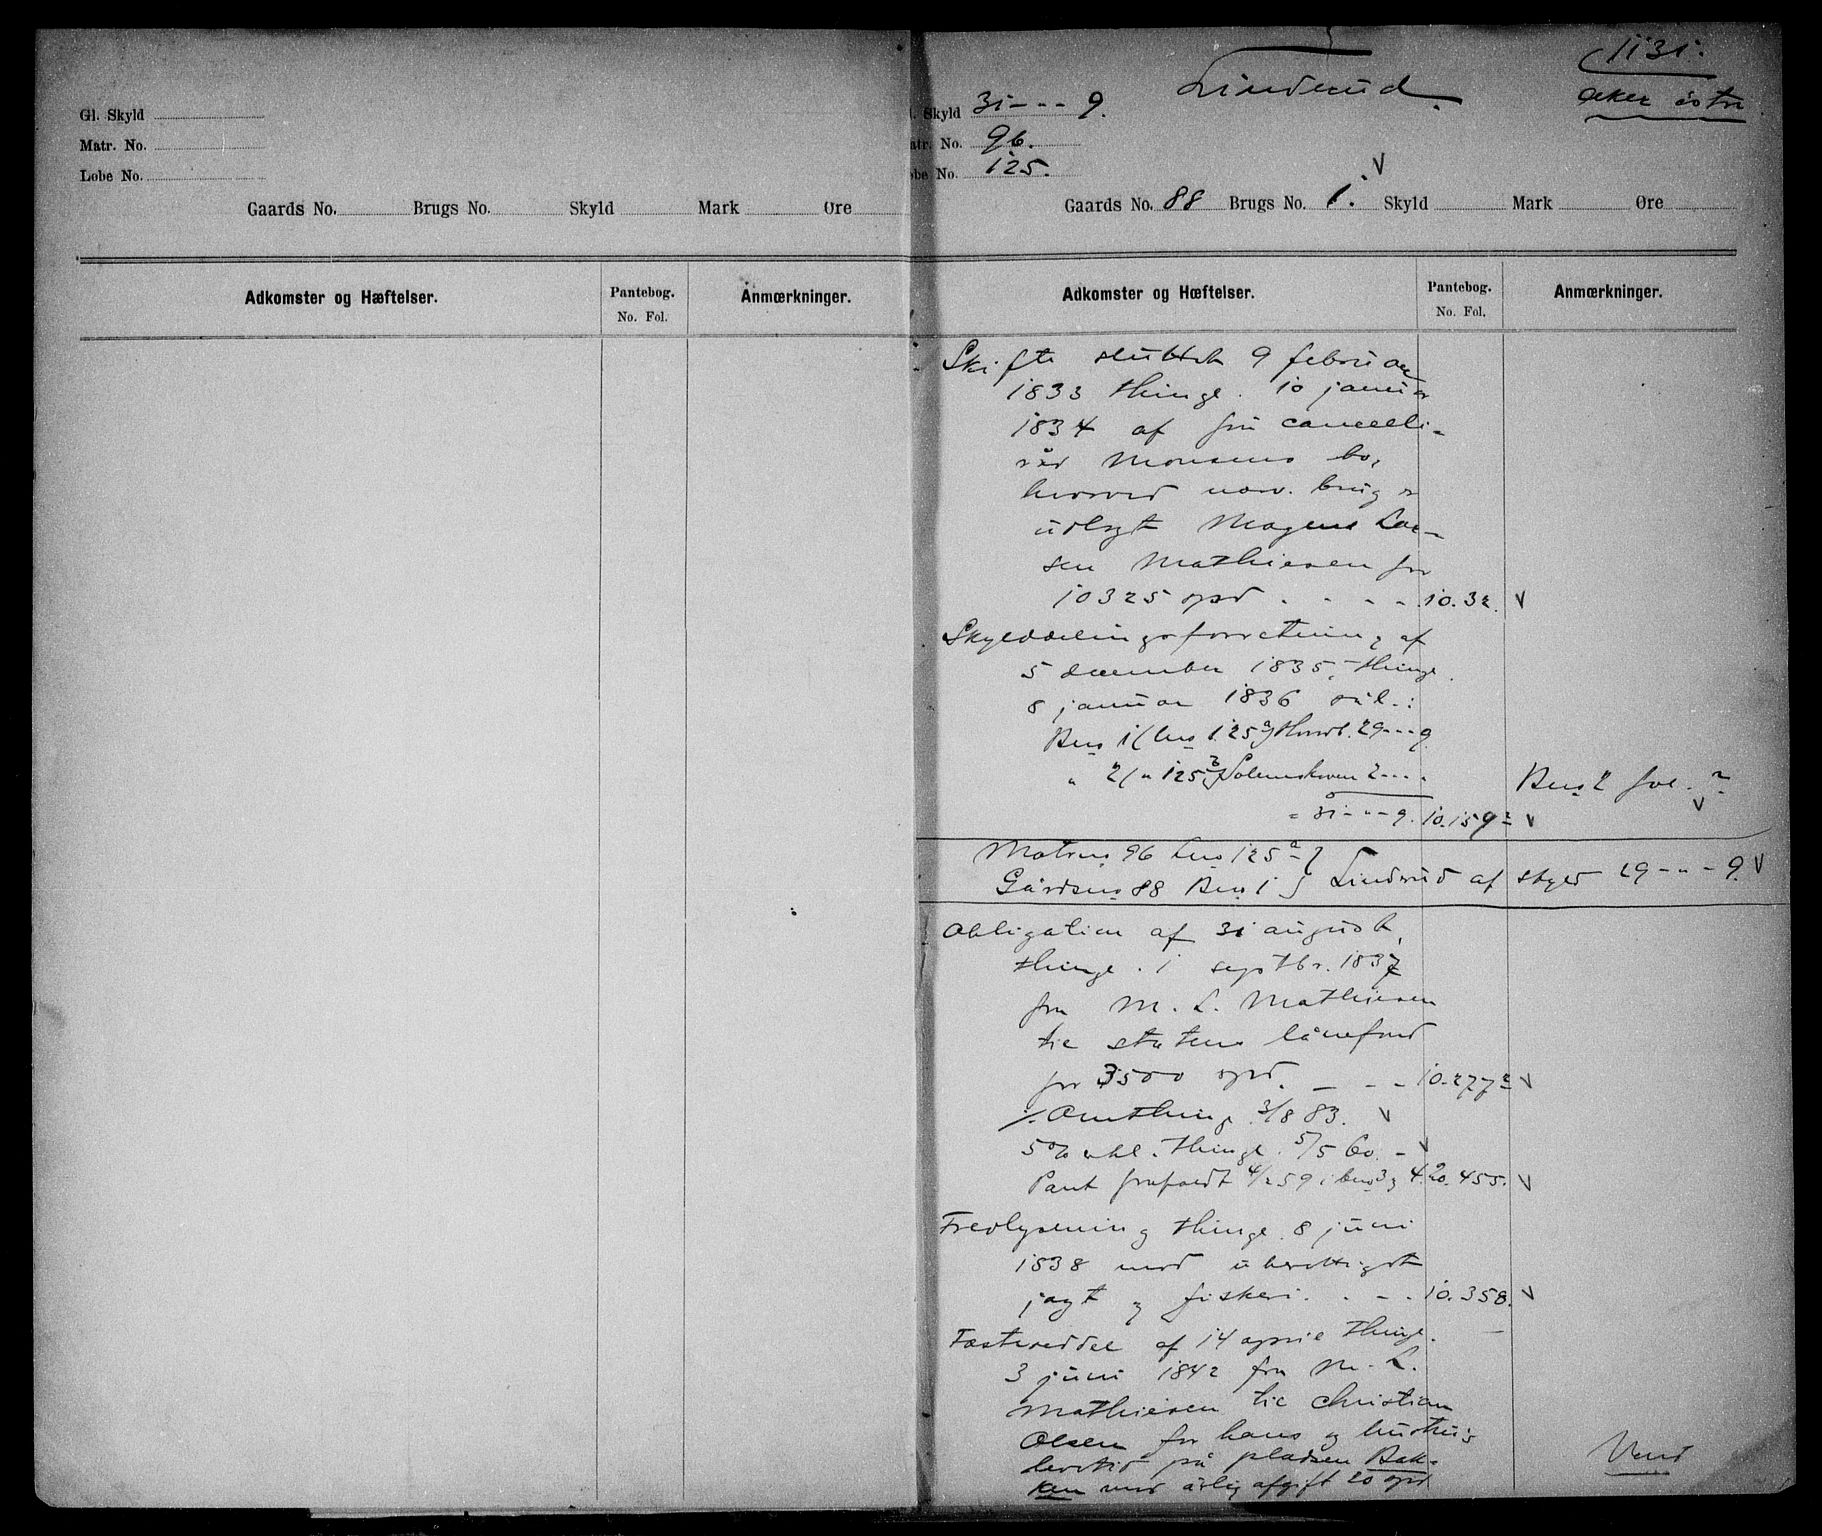 Gl. Skyld
Matr. No.
Løbe No.
Gaards No. Brugs No. Skyld Mark Øre
Adkomster og Hæftelser. Pantebog. No. Fol. Anmærkninger.
Linderud.
1131.
Aker østre
l. Skyld 31 - - - 9.
atr. No. 96.
be No. 125.
Gaards No. 88 Brugs No. 1. Skyld Mark Øre
Adkomster og Hæftelser. Pantebog. No. Fol. Anmærkninger.
Skifte sluttet 9 februar
1833 thingl. 10 januar
1834 af fru cancelli-
råd Monsens bo,
hvorved nærv. brug er
udlagt Mogens Lar-
sen Mathiesen for
10325 spd . - - - 10.32. v
Skylddelingsforretning af
5 december 1835, thingl.
8 januar 1836
Bno 1 (Lno 125a) Hovedb. 29 - - - 9.
" 2 (" 125b) Solemskoven 2 - - - Bno 2 fol. 2 v
= 31 - " - 9. 10.159 2 v
Matrno 96 Lno 125a
Gårdsno 88 Bno 1 } Linderud af skyld 29 - " - 9. v
Obligation af 31 august,
thingl. 1 septbr. 1837
fra M. L. Mathiesen
til statens lånefond
for 3500 spd. - - - 10.277 2 v
Omthingl. 3/8 83. v
5% thingl. 5/5 60. - v
Pant frafaldt 4/2 59 i bno 3 og 4. 20.455. v
Fredlysning thingl. 8 juni
1838 mod uberettiget
jagt og fiskeri . - - . 10.358. v
Fæsteseddel af 14 april thingl.
3 juni 1842 fra M. L.
Mathiesen til Christian
Olsen for hans og hustrus
levetid på pladsen Bak-
ken mod årlig afgift 20 spd
Vend